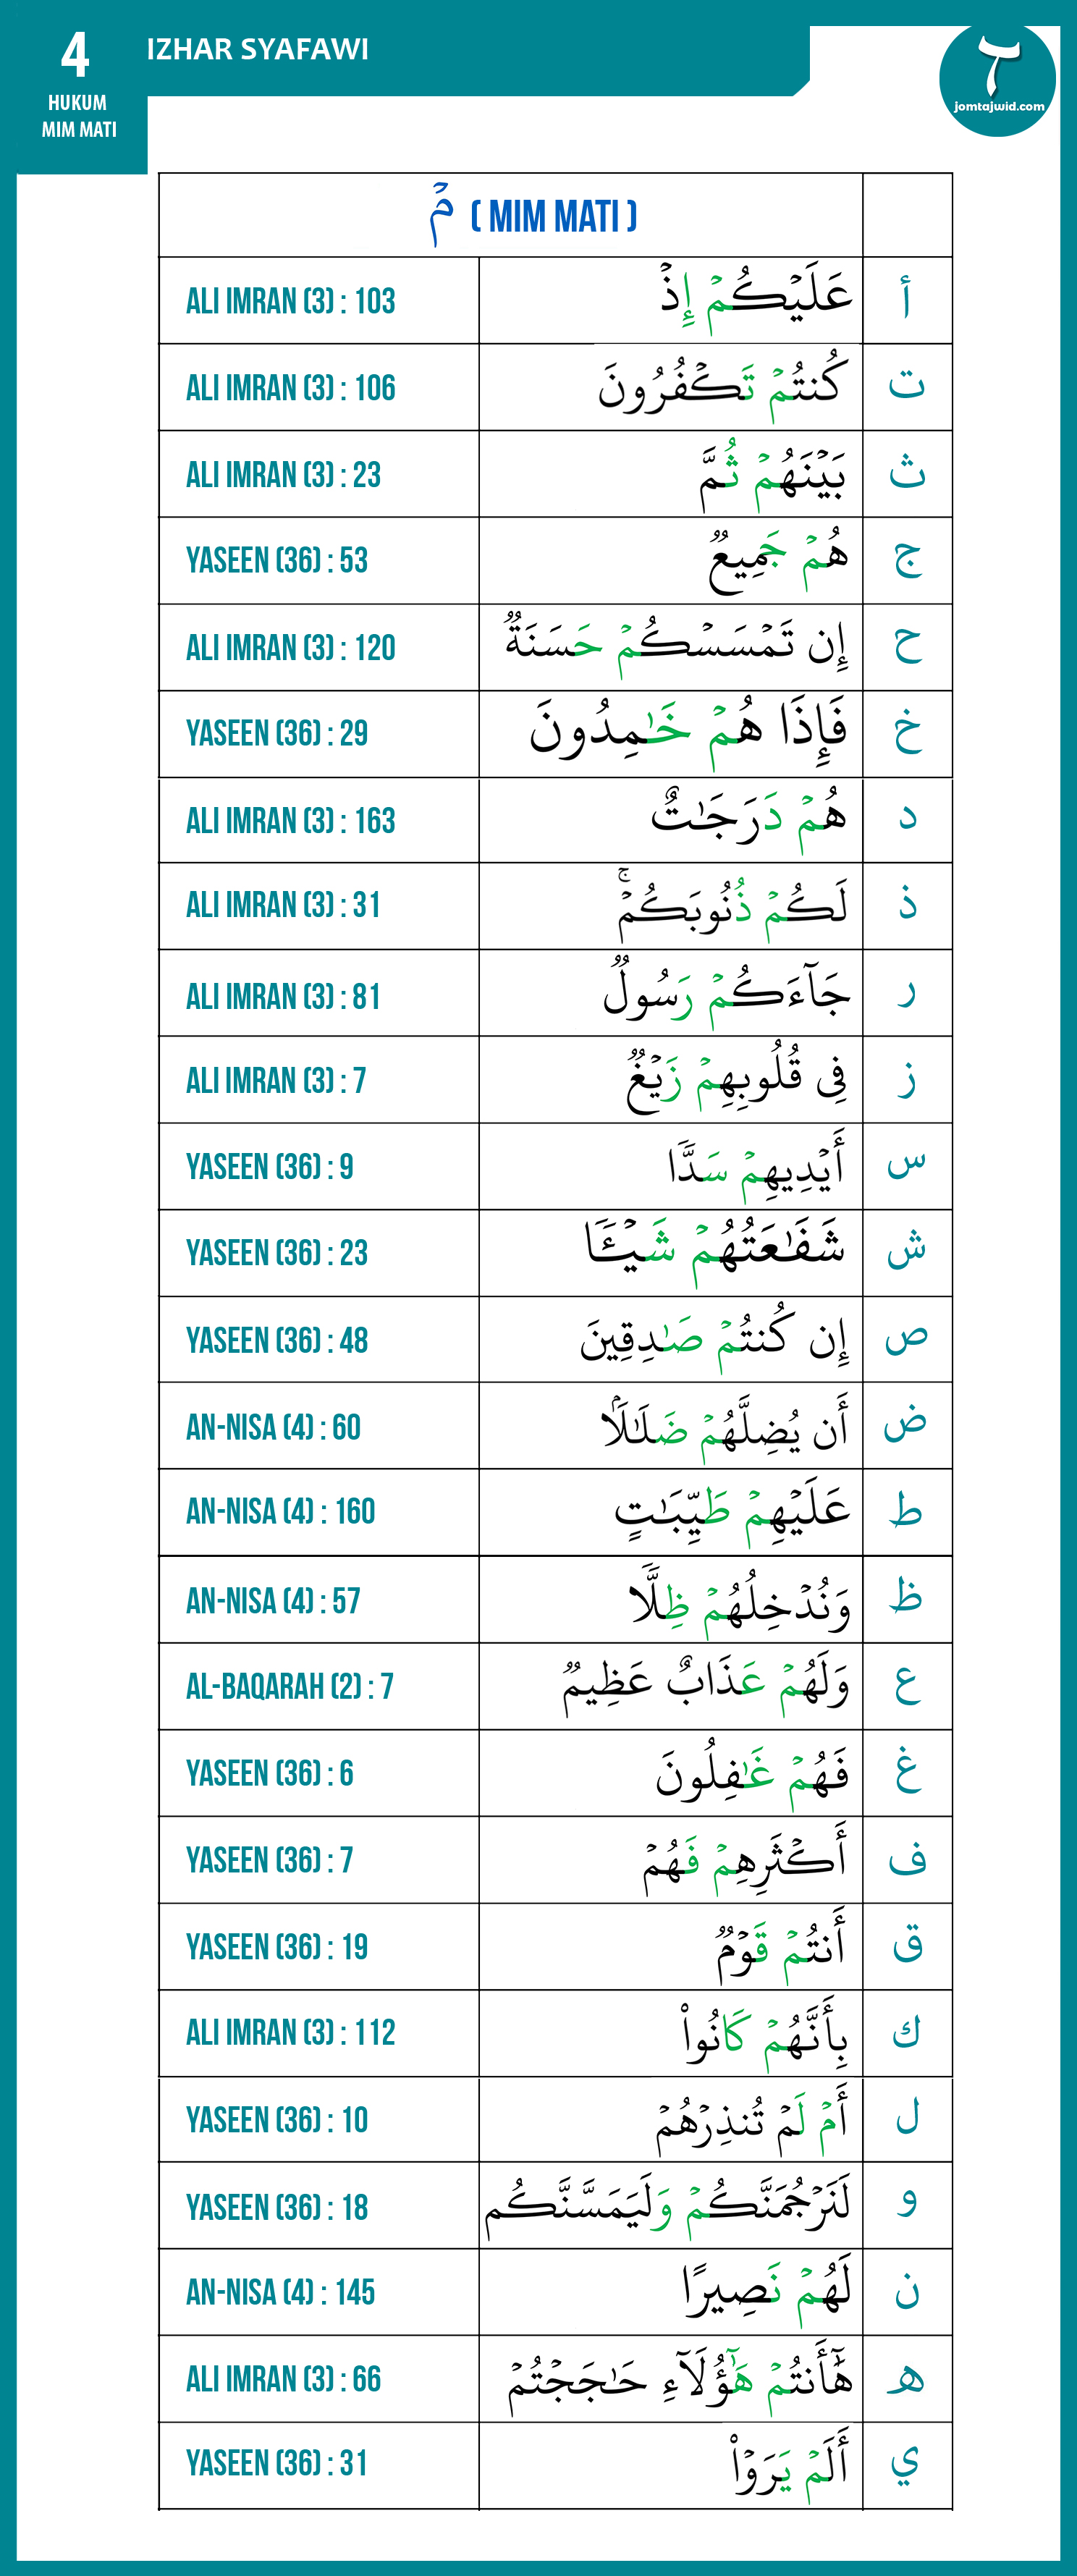 4
HUKUM
MIM MATI
IZHAR SYAFAWI
jomtajwid.com
مۡ ( MIM MATI )
ALI IMRAN (3) : 103 عَلَيۡكُمۡ إِذۡ أ
ALI IMRAN (3) : 106 كُنتُمۡ تَكۡفُرُونَ ت
ALI IMRAN (3) : 23 بَيۡنَهُمۡ ثُمَّ ث
YASEEN (36) : 53 هُمۡ جَمِيعٞ ج
ALI IMRAN (3) : 120 إِن تَمۡسَسۡكُمۡ حَسَنَةٞ ح
YASEEN (36) : 29 فَإِذَا هُمۡ خَٰمِدُونَ خ
ALI IMRAN (3) : 163 هُمۡ دَرَجَٰتٌ د
ALI IMRAN (3) : 31 لَكُمۡ ذُنُوبَكُمۡۚ ذ
ALI IMRAN (3) : 81 جَآءَكُمۡ رَسُولٞ ر
ALI IMRAN (3) : 7 فِي قُلُوبِهِمۡ زَيۡغٞ ز
YASEEN (36) : 9 أَيۡدِيهِمۡ سَدّٗا س
YASEEN (36) : 23 شَفَٰعَتُهُمۡ شَيۡـٔٗا ش
YASEEN (36) : 48 إِن كُنتُمۡ صَٰدِقِينَ ص
AN-NISA (4) : 60 أَن يُضِلَّهُمۡ ضَلَٰلَۢا ض
AN-NISA (4) : 160 عَلَيۡهِمۡ طَيِّبَٰتٍ ط
AN-NISA (4) : 57 وَنُدۡخِلُهُمۡ ظِلّٗا ظ
AL-BAQARAH (2) : 7 وَلَهُمۡ عَذَابٌ عَظِيمٞ ع
YASEEN (36) : 6 فَهُمۡ غَٰفِلُونَ غ
YASEEN (36) : 7 أَكۡثَرِهِمۡ فَهُمۡ ف
YASEEN (36) : 19 أَنتُمۡ قَوۡمٞ ق
ALI IMRAN (3) : 112 بِأَنَّهُمۡ كَانُواْ ك
YASEEN (36) : 10 أَمۡ لَمۡ تُنذِرۡهُمۡ ل
YASEEN (36) : 18 لَنَرۡجُمَنَّكُمۡ وَلَيَمَسَّنَّكُم و
AN-NISA (4) : 145 لَهُمۡ نَصِيرًا ن
ALI IMRAN (3) : 66 هَٰٓأَنتُمۡ هَٰٓؤُلَآءِ حَٰجَجۡتُمۡ ه
YASEEN (36) : 31 أَلَمۡ يَرَوۡاْ ي